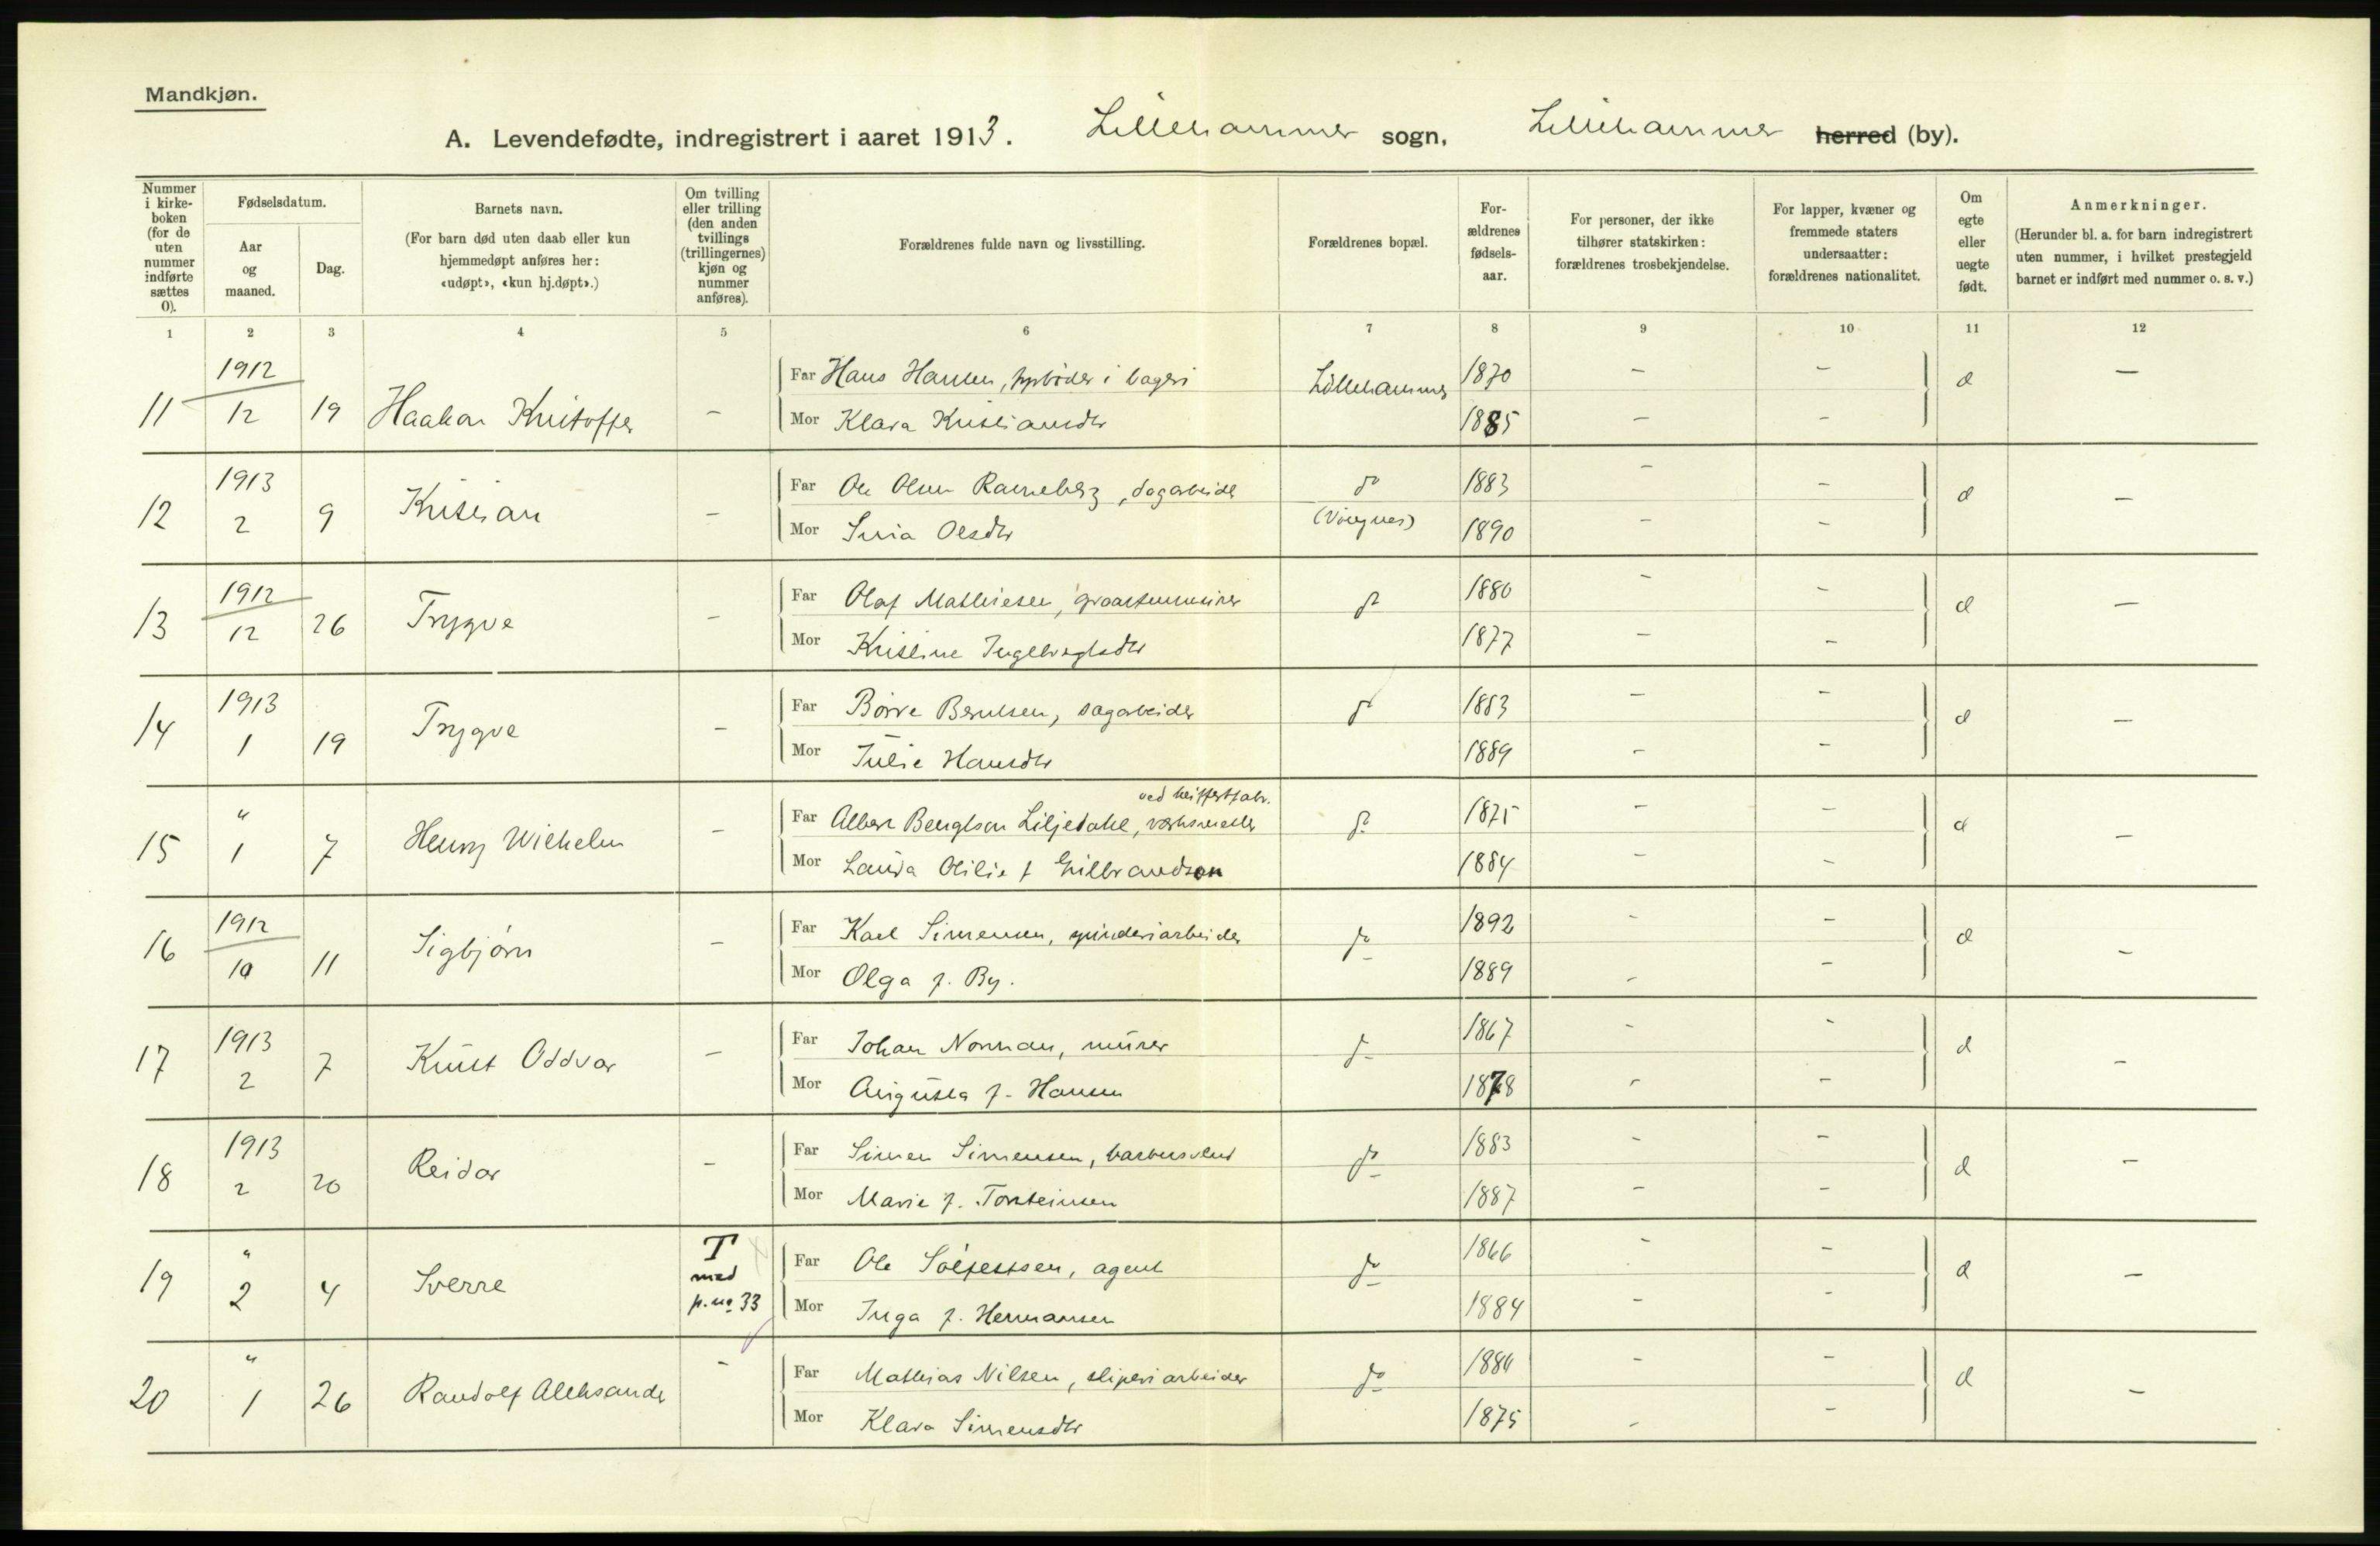 Mandkjøn.
A. Levendefødte, indregistrert i aaret 1913. Lillehammer sogn, Lillehammer herred (by).
Nummer i kirkeboken (for de uten nummer indførte sættes 0).
Fødselsdatum.
Aar og maaned.
Dag.
Barnets navn.
(For barn død uten daab eller kun hjemmedøpt anføres her: «udøpt», «kun hj.døpt».)
Om tvilling eller trilling (den anden tvillings (trillingernes) kjøn og nummer anføres).
Forældrenes fulde navn og livsstilling.
Forældrenes bopæl.
Forældrenes fødselsaar.
For personer, der ikke tilhører statskirken: forældrenes trosbekjendelse.
For lapper, kvæner og fremmede staters undersaatter: forældrenes nationalitet.
Om egte eller uegte født.
Anmerkninger.
(Herunder bl. a. for barn indregistrert uten nummer, i hvilket prestegjeld barnet er indført med nummer o. s. v.)
1 2 3 4 5 6 7 8 9 10 11 12
11 1912 12 19 Haakon Kristoffer – Far Hans Hansen, i bageri Lillehammer 1870 – – d –
Mor Klara Kristiansdtr 1885 – –
12 1913 2 9 Kristian – Far Ole Olsen, dagarbeider do 1883 – – d –
(Vingnes)
Mor Olsdtr 1890 – –
13 1912 12 26 Trygve – Far Olaf Mathiesen, do 1880 – – d –
Mor Kristine Ingebrigtsdtr 1877 – –
14 1913 1 19 Trygve – Far Børre Berntsen, sagarbeider do 1883 – – d –
Mor Julie Hansdtr 1889 – –
15 " 1 7 Henry Wilhelm – Far Albert Bengtson Liljedahl, verksmester do 1875 – – d –
Mor Otilie f Gulbrandson 1884 – –
16 1912 10 11 Sigbjørn – Far Karl Simensen, spinderiarbeider do 1892 – – d –
Mor Olga f. By. 1889 – –
17 1913 2 7 Knut Oddvar – Far Johan Norman, murer do 1867 – – d –
Mor Augusta f. Hansen 1878 – –
18 1913 2 20 Reidar – Far Simen Simensen, barbersvend do 1883 – – d –
Mor Marie f. Torsteinsen 1887 – –
19 " 2 4 Sverre T med p. no 33 Far Ole, agent do 1866 – – d –
Mor Inga f. Hermansen 1884 – –
20 " 1 26 Randolf Aleksander – Far Mathias Nilsen, sliperiarbeider do 1880 – – d –
Mor Klara Simensdtr 1875 – –